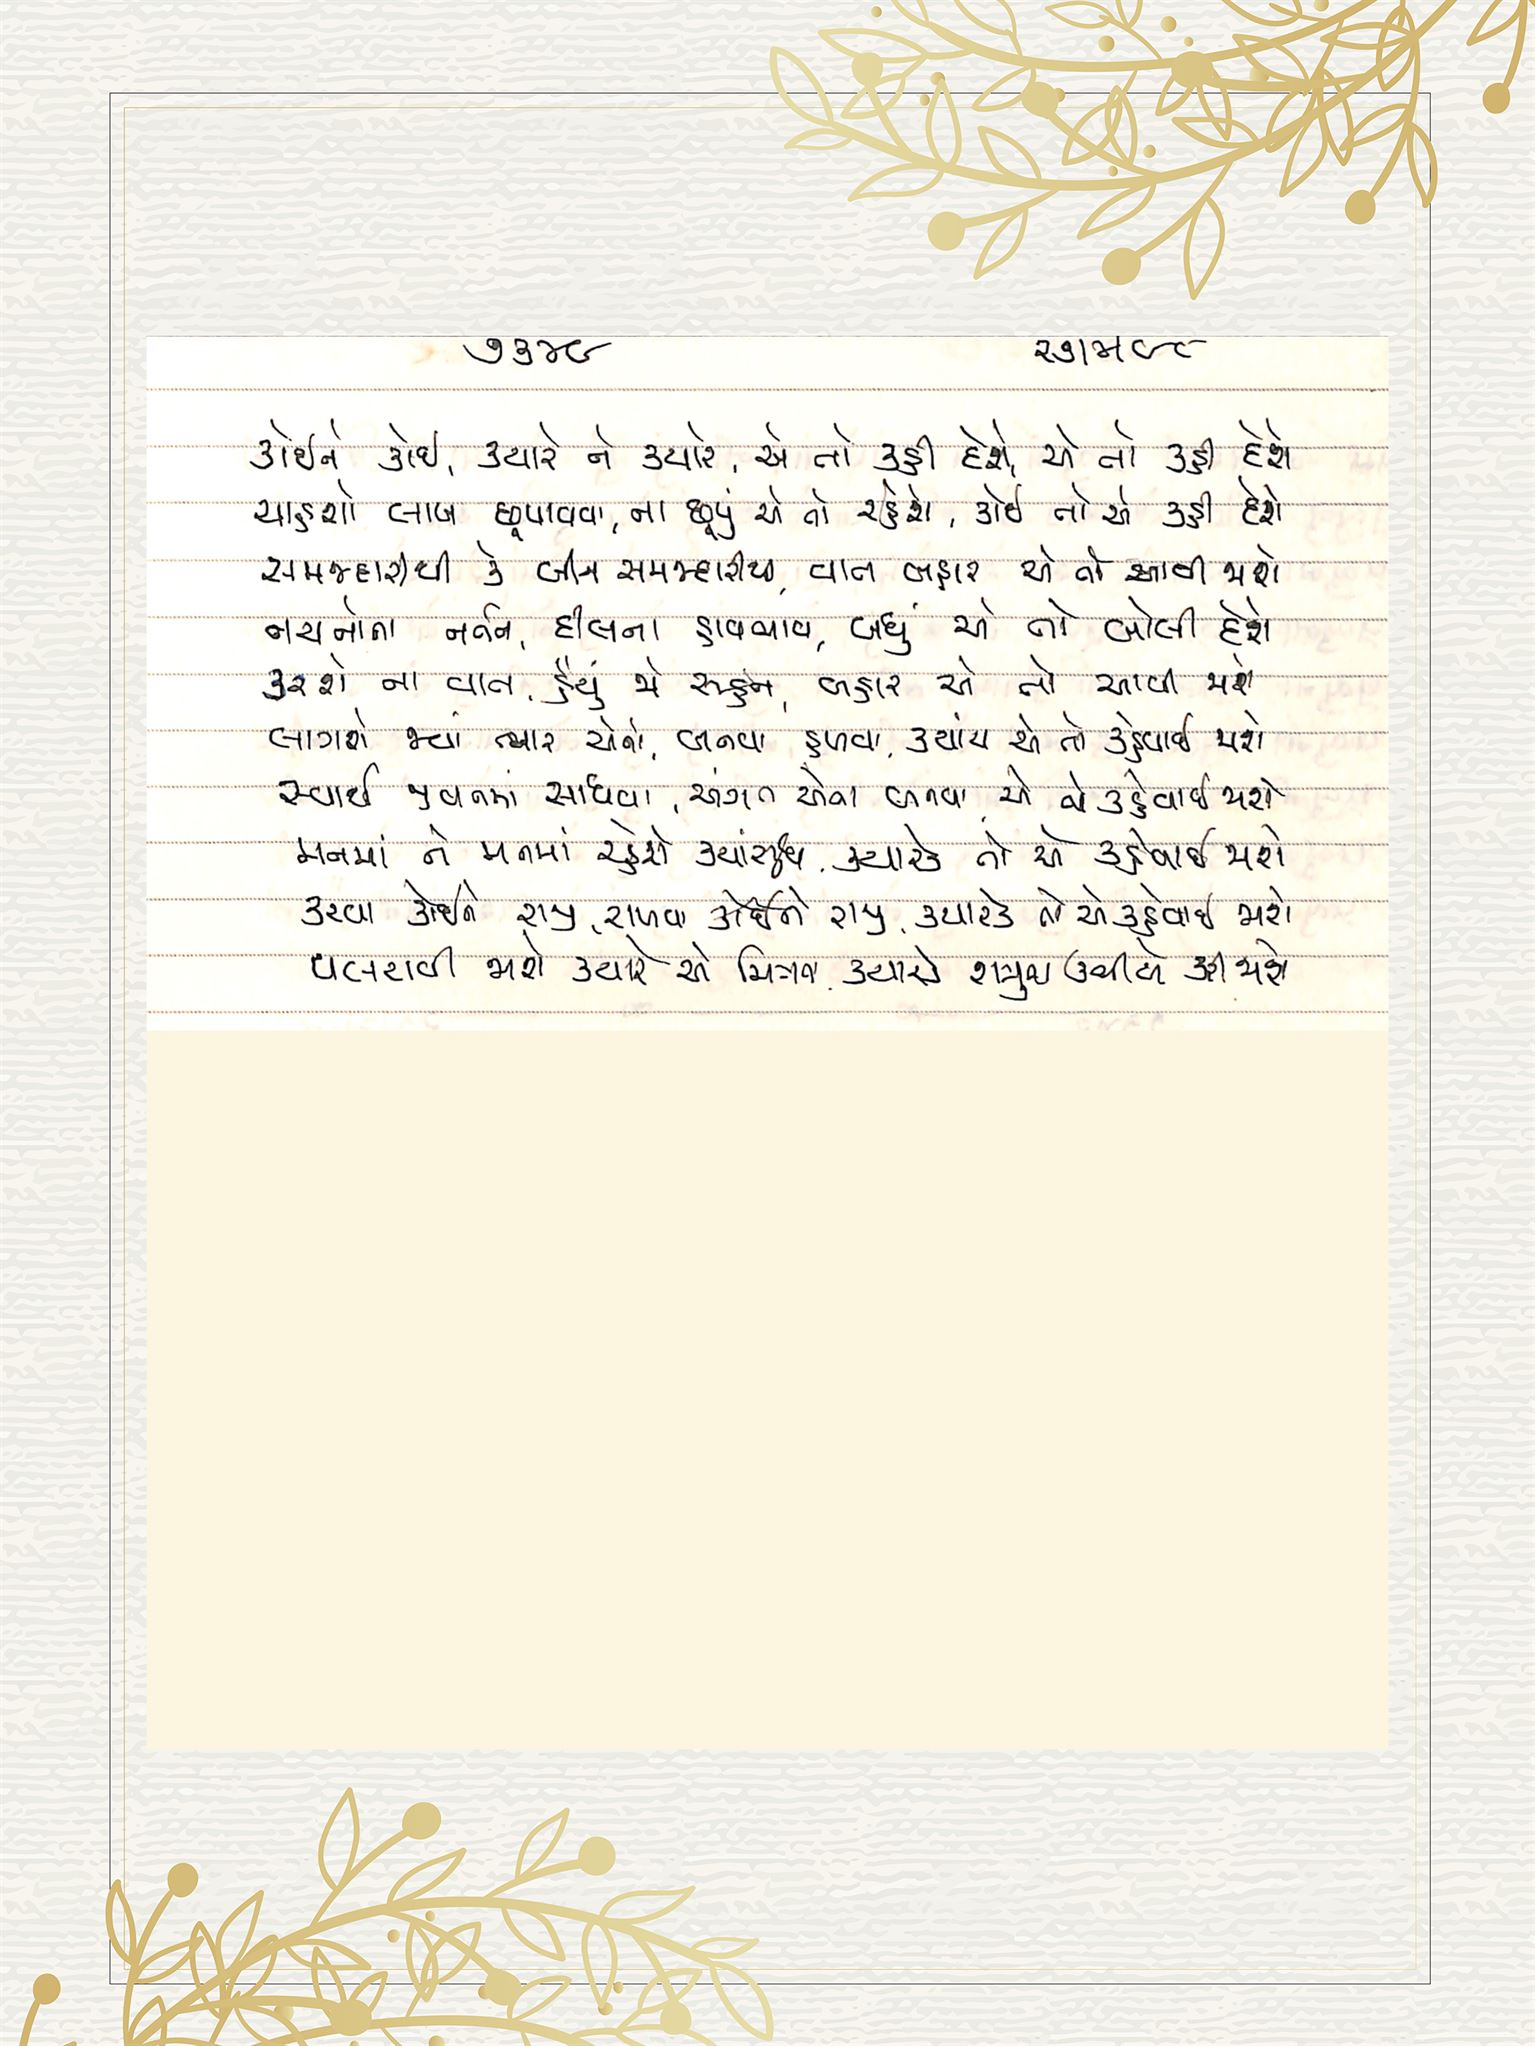 ૭૩૪૯ ૨૭।૫ ૯૮
કોઈને કોઈ, ક્યારે ને ક્યારે, એ તો કહી દેશે, એ તો કહી દેશે
ચાહશો લાખ છૂપાવવા, ના છૂપું એ તો રહેશે, કોઈ તો એ કહી દેશે
સમજદારીથી કે બીન સમજદારીથી, વાત બહાર એ તો આવી જાશે
નયનોના નર્તન, દીલના હાવભાવ, બધું એ તો બોલી દેશે
કરશો ના વાત, હૈયું જો રુદન, બહાર એ તો આવી જાશે
લાગશે જ્યાં ત્યાર એવો, બનવા હળવા, ક્યાંય એ તો કહેવાઈ જાશે
સ્વાર્થ જીવનમાં સાધવા, અંગત એના બનવા, એ તો કહેવાઈ જાશે
મનમાં ને મનમાં રહેશે ક્યાંસુધી, ક્યારેક તો એ કહેવાઈ જાશે
કરવા કોઈને રાજી, રાખવા કોઈને રાજી, ક્યારેક તો એ કહેવાઈ જાશે
જાશે ક્યારે એ મિત્રતા, ક્યારેક શત્રુતા ઉભી એ કરી જાશે